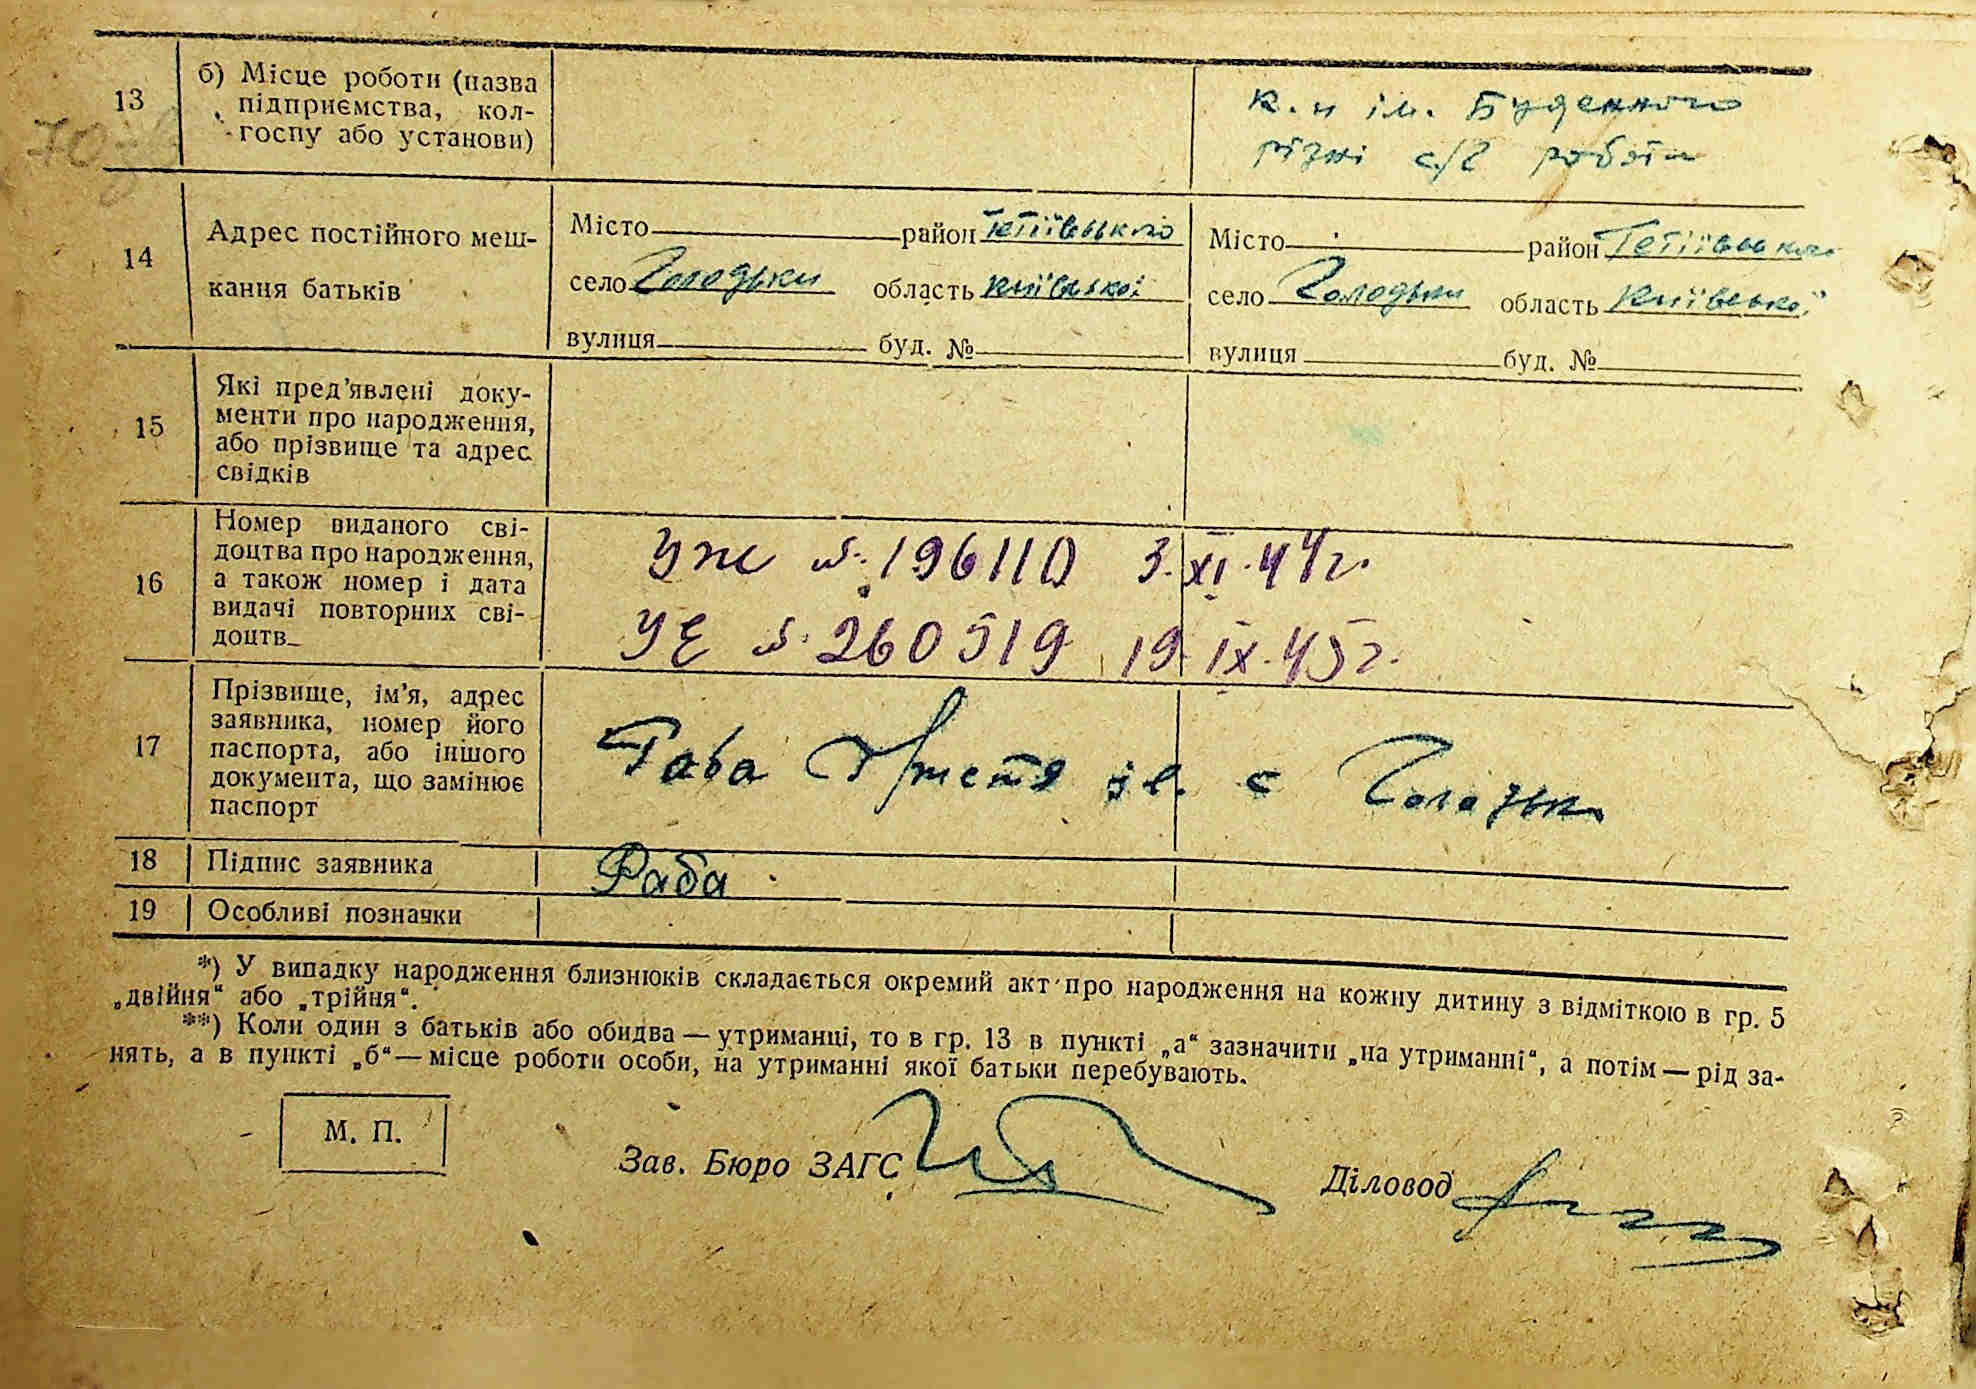 13
б) Місце роботи (назва
підприємства, кол-
госпу або установи)
к. и ім. Буденного
різні с/г роботи
14
Адрес постійного меш-
кання батьків
Місто район Тетіївського
село Голодьки область Київської
вулиця буд. №
Місто район Тетіївського
село Голодьки область Київської
вулиця буд. №
15
Які пред’явлені доку-
менти про народження,
або прізвище та адрес
свідків
16
Номер виданого сві-
доцтва про народження,
а також номер і дата
видачі повторних сві-
доцтв
УЖ №196110 3.XI.44г.
УЕ №260519 19.IX.45г.
17
Прізвище, ім’я, адрес
заявника, номер його
паспорта, або іншого
документа, що замінює
паспорт
с Голодьки
18
Підпис заявника
Раба
19
Особливі позначки
*) У випадку народження близнюків складається окремий акт про народження на кожну дитину з відміткою в гр. 5
„двійня“ або „трійня“.
**) Коли один з батьків або обидва — утриманці, то в гр. 13 в пункті „а“ зазначити „на утриманні“, а потім — рід за-
нять, а в пункті „б“ — місце роботи особи, на утриманні якої батьки перебувають.
М. П.
Зав. Бюро ЗАГС
Діловод